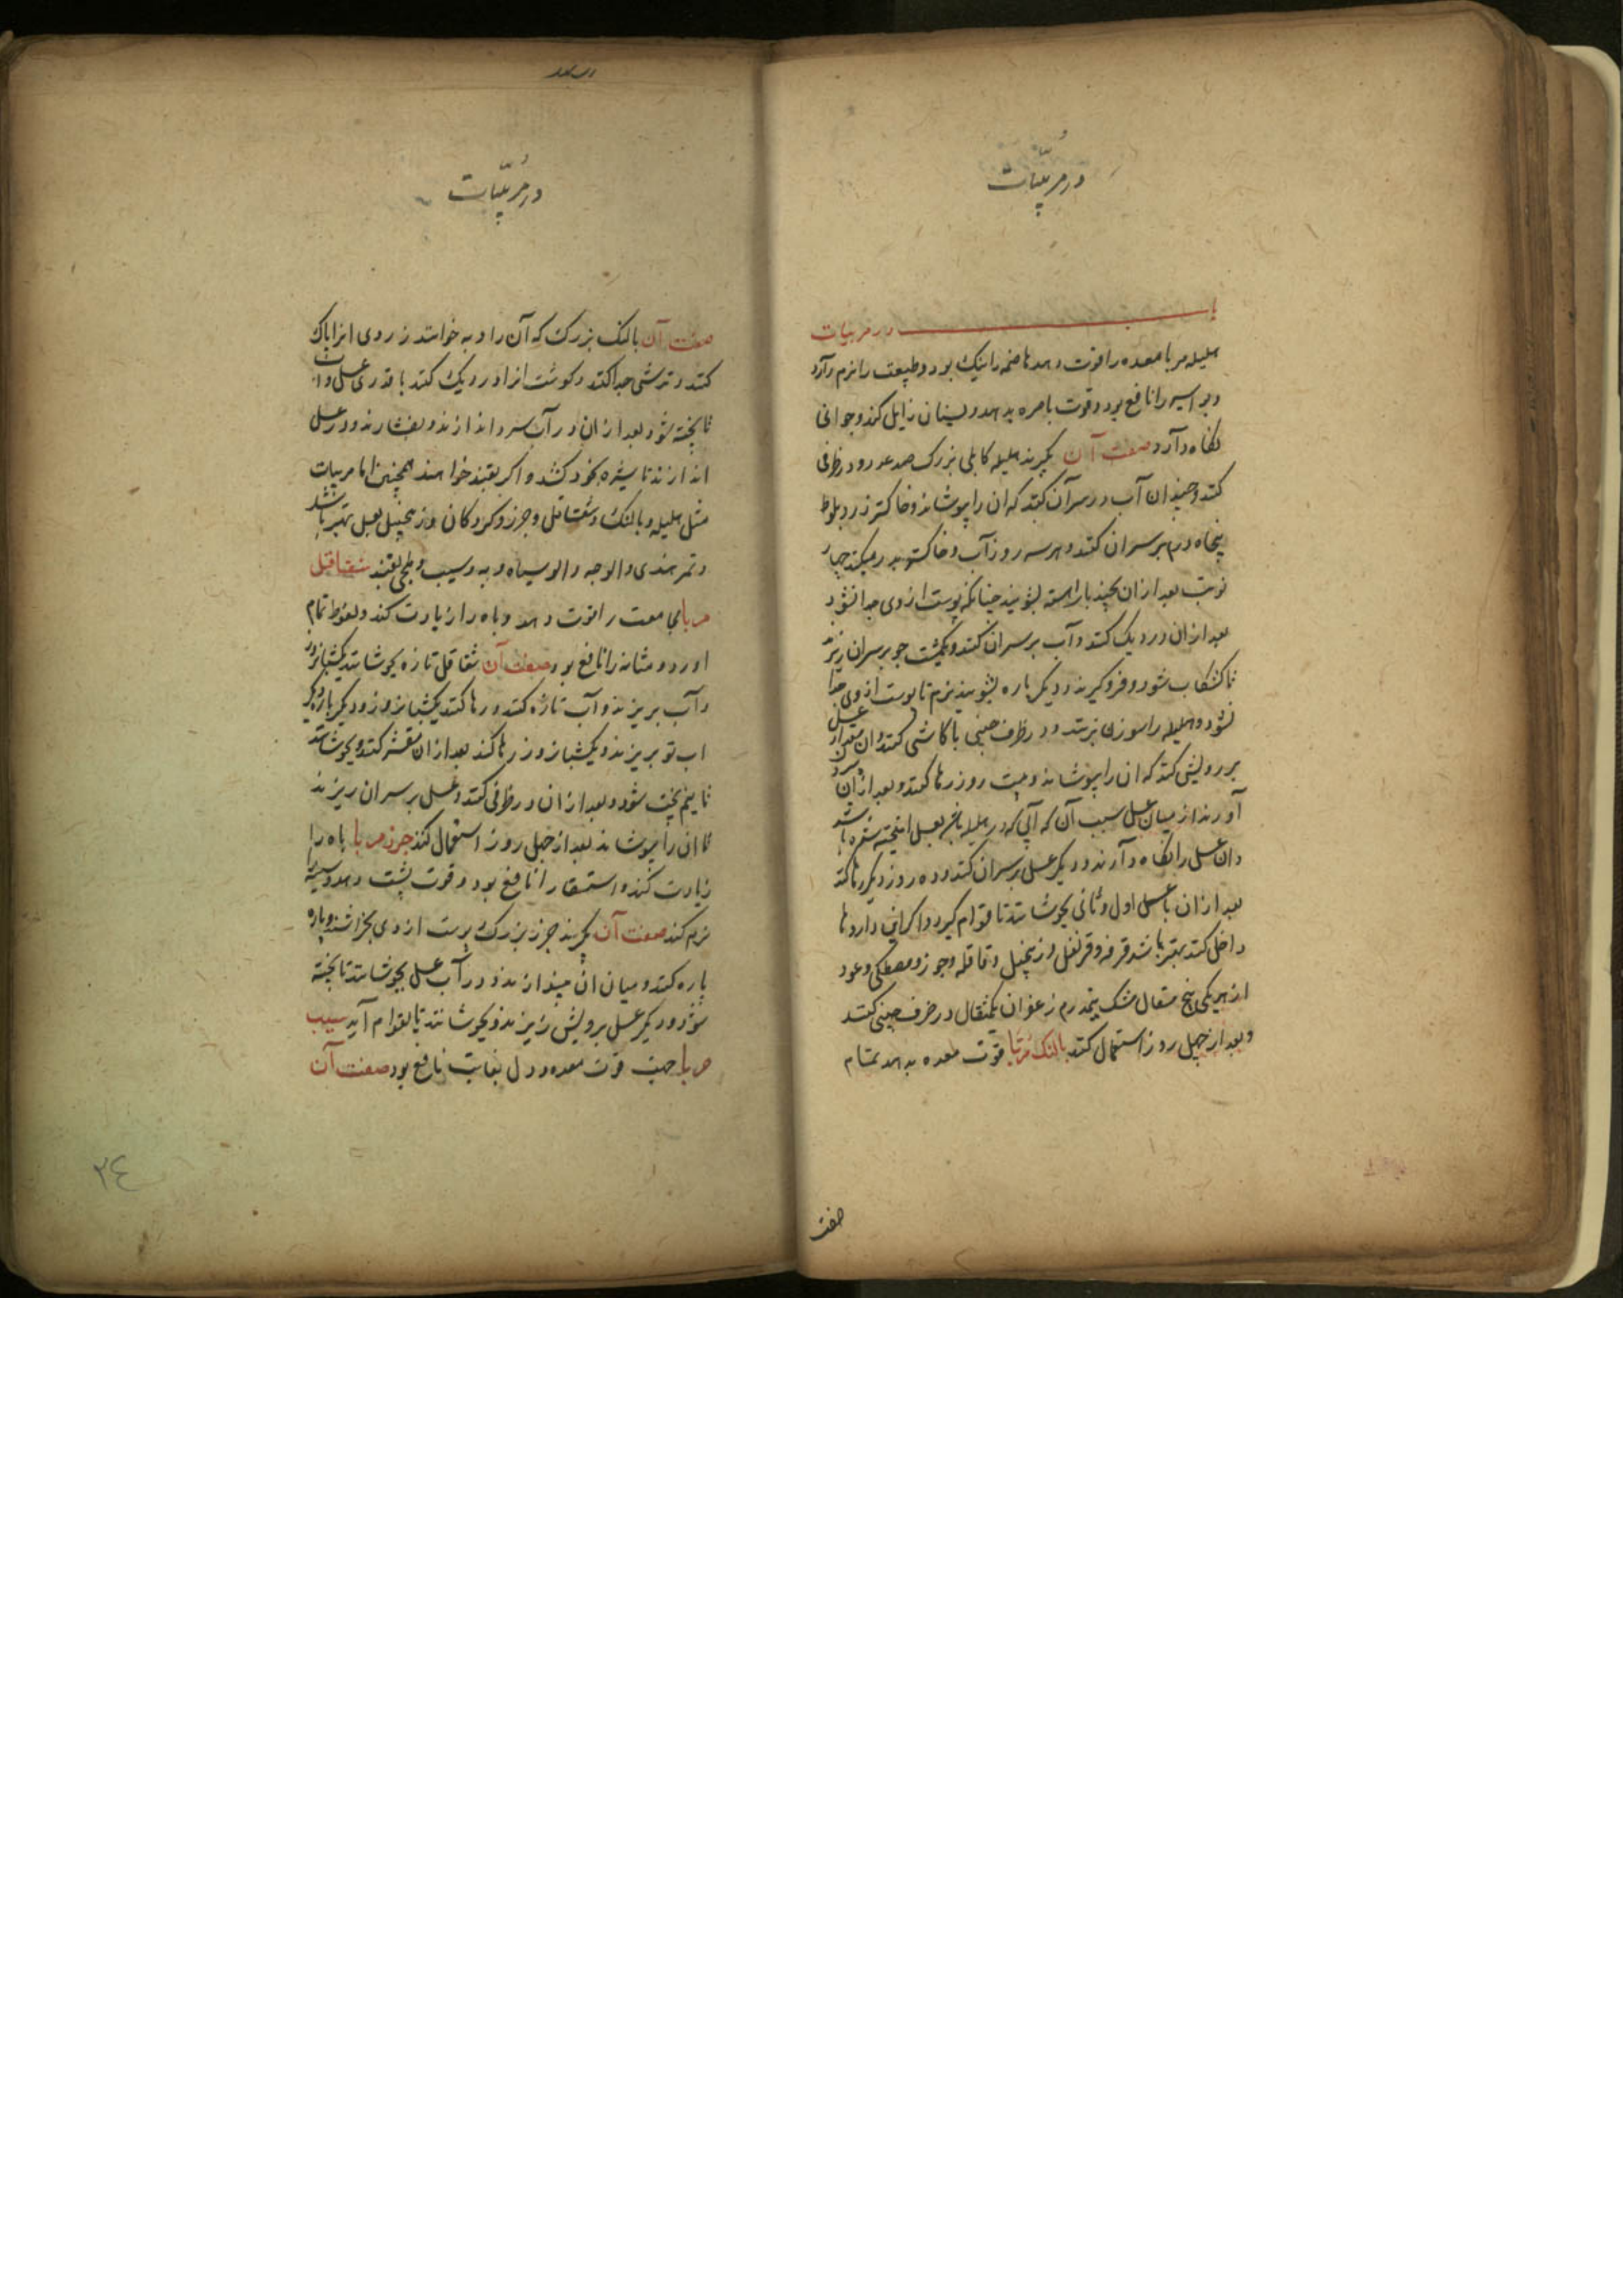 در مربیات
باب در مربیات
هلیله مربا معده را قوت دهد هاضمه را نیک بود و طبیعت را نرم دارد
و بواسیر را نافع بود و قوت باصره بدهد و نسیان زایل کند و جوانی
نکاه دارد صفت آن بکیرند هلیله کابلی بزرک صد عدد و در ظرفی
کنند و چندان آب در سر آن کنند که ان را بپوشاند و خاکستر رز و بلوط
پنجاه درم بر سر ان کنند و هر سه روز آب و خاکستر بدر میکند چهار
نوبت بعد از ان بچند بار اهسته بشویند چنانکه پوست از وی جدا نشود
بعد از ان در دیک کنند و آب بر سر ان کنند و یکمشت جو بر سر ان ریزند
تا کشکاب شود و فرو کیرند و دیکر باره بشویند بنرم تا پوست از وی جدا
نشود و هلیله را سوزن بزنند و در ظرف چینی یا کاشی کنند و ان مقدار عسل
بر رویش کنند که ان را بپوشاند و بیست روز رها کنند و بعد از آن
آورند از میان عسل سبب آن که آبی که در هلیله باشد بعسل امیخته شده باشد
و ان عسل را نکاه دارند و دیکر عسل بر سر ان کنند و ده روز دیکر رها کنند
بعد از ان با عسل اول و ثانی بجوشانند تا قوام کیرد و اکر این داروها
داخل کنند بهتر باشد قرفه و قرنفل و زنجبیل و قاقله و جوز و مصطکی و عود
از هر یکی پنج مثقال مشک نیمدرم زعفران یکمثقال در ظرف چینی کنند
و بعد از چهل روز استعمال کنند بالنک مربا قوت معده بدهد بتمام
صفت
در مربیات
صفت آن بالنک بزرک که آن را و به خوانند زردی از او پاک
کنند و ترشی جدا کنند و کوشت از او در دیک کنند با قدری عسل و آب
تا پخته شود بعد از ان در آب سرد اندازند و بفشارند و در عسل
اندازند تا شیره بخود کشد و اکر بقند خواهند همچنین اما مربیات
مثل هلیله و بالنک و شقاقل و جزر و کردکان و زنجبیل بعسل بهتر باشد
و تمر هندی و الوچه و الو سیاه و به و سیب و بقند شقاقل
مربا مجامعت را قوت دهد و باه را زیادت کند و نعوظ تمام
اورد و مثانه را نافع بود صفت آن شقاقل تازه بجوشانند یکشبانروز
و آب بریزند و آب تازه کنند و رها کنند یکشبانروز و دیکر باره
اب نو بریزند و یکشبانروز رها کنند بعد از ان مقشر کنند و بجوشانند
تا نیم پخت شود و بعد از ان در ظرفی کنند و عسل بر سر ان ریزند
تا ان را بپوشاند بعد از چهل روز استعمال کنند جزر مربا باه را
زیادت کند و استسقا را نافع بود و قوت پشت دهد و سینه
نرم کند صفت آن بکیرند جزر بزرک پوست از وی بخراشند و پاره
پاره کنند و میان ان بیندازند و در آب عسل بجوشانند تا پخته
شود و دیکر عسل برویش ریزند و بجوشانند تا بقوام آید سیب
مربا جهت قوت معده و دل بغایت نافع بود صفت آن
۲۴